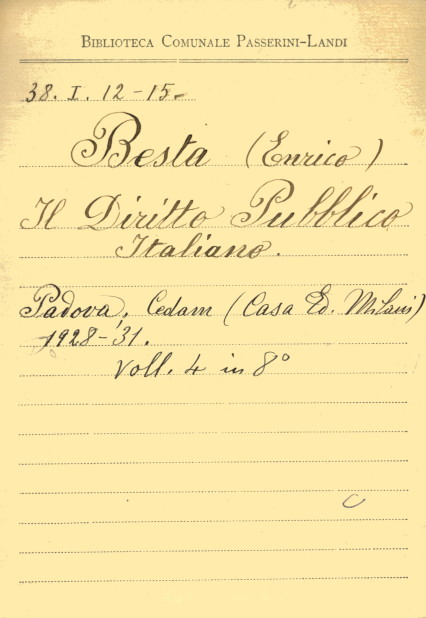 BIBLIOTECA COMUNALE PASSERINI-LANDI
38. I. 12-15-
Besta (Enrico)
Il Diritto Pubblico
Italiano.
Padova, Cedam (Casa Ed. Milani)
1928-'31.
Voll. 4 in 8°
C